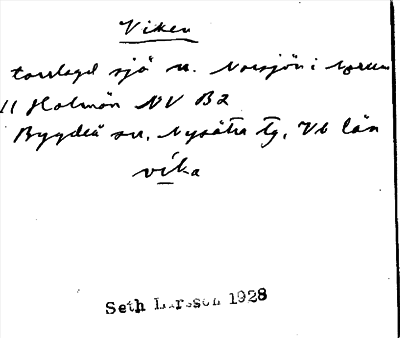 Viken
torrlagd sjö n. Norsjön i
11 Holmön NV B2
Bygdeå sn, Nysätra tg, Vb län
vika
Seth Larsson 1928